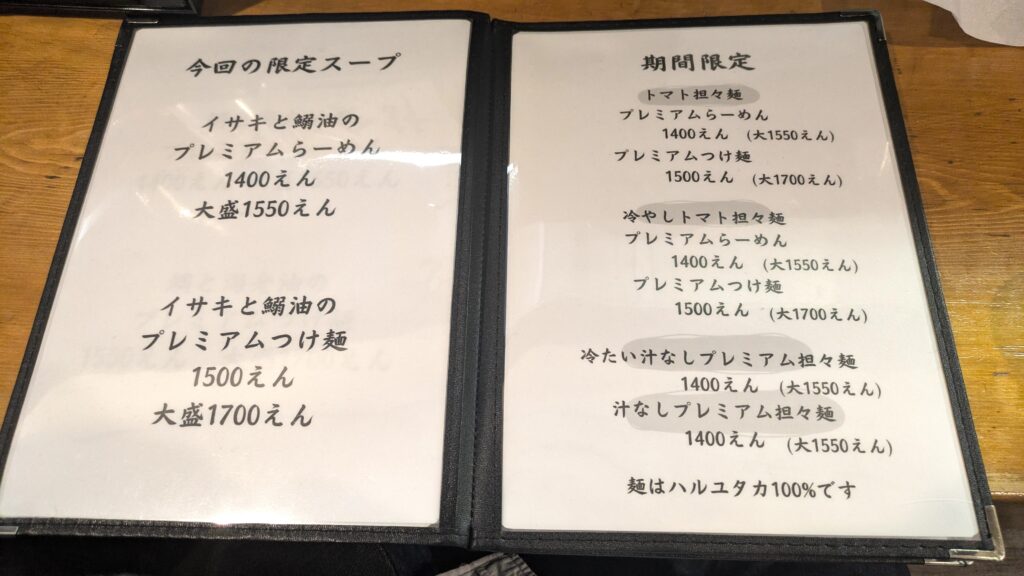 今回の限定スープ
イサキと鰯油の
プレミアムらーめん
1400えん
大盛1550えん
イサキと鰯油の
プレミアムつけ麺
1500えん
大盛1700えん
期間限定
トマト担々麺
プレミアムらーめん
1400えん (大1550えん)
プレミアムつけ麺
1500えん (大1700えん)
冷やしトマト担々麺
プレミアムらーめん
1400えん (大1550えん)
プレミアムつけ麺
1500えん (大1700えん)
冷たい汁なしプレミアム担々麺
1400えん (大1550えん)
汁なしプレミアム担々麺
1400えん (大1550えん)
麺はハルユタカ100%です